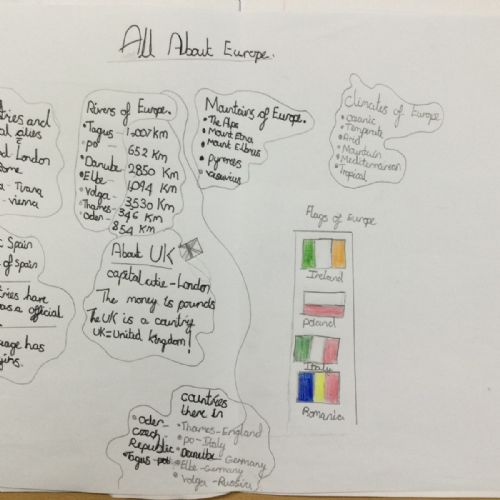 All About Europe.
ries and
al cities
d London
ome
- Tirana
- vienna
Spain
of Spain
tries have
as a official
uage has
gins.
Rivers of Europe.
Tagus - 1,007 KM
po - 652 KM
Danube 2850 KM
Elbe - 1,094 KM
Volga - 3,530 KM
Thames - 346 KM
Oder - 854 KM
About UK
capital citie - London
The money is pounds
The UK is a country
UK = United Kingdom!
Mountains of Europe.
The Alps
Mount Etna
Mount Elbrus
Pyrenees
Vesuvius
Climates of Europe
Oceanic
Temperate
Arid
Mountain
Mediterranean
Tropical
Flags of Europe
Ireland
Poland
Italy
Romania
countries
there in
Oder -
Czech
Republic
Tagus -
Thames - England
po - Italy
Danube Germany
Elbe - Germany
Volga - Russia